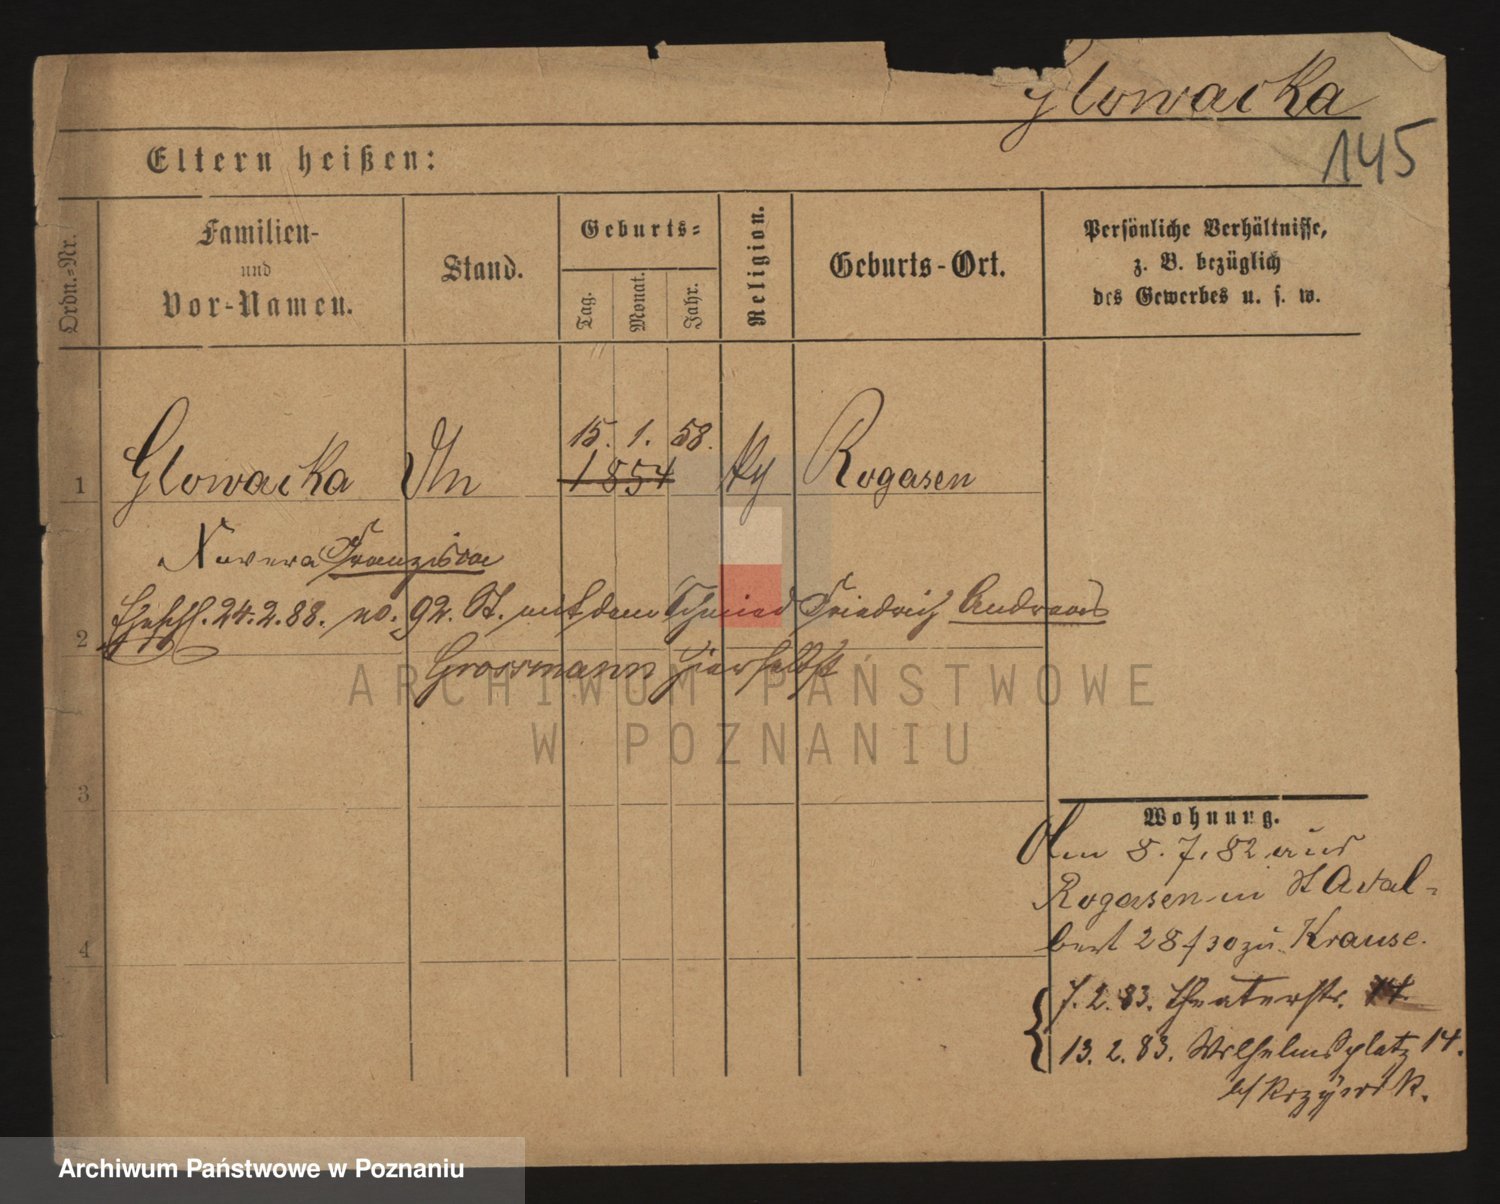 Glowacka
145
Eltern heißen:
Ordn.-Nr.
Familien-
und
Vor-Namen.
Stand.
Geburts-
Tag.
Monat.
Jahr.
Religion.
Geburts-Ort.
Persönliche Verhältnisse,
z. B. bezüglich
des Gewerbes u. s. w.
15. 1. 58.
1 Glowacka Un 1854 Rogasen
Xavera Franziska
Ehschl. 24.2.88. no. 92. St. mit dem Schmied Friedrich Andreas
2
Grossmann hierselbst
ARCHIWUM PAŃSTWOWE
W POZNANIU
3
Wohnung.
Am 8.7.82 aus
Rogasen in St Adal-
bert 28/30 zu Krause.
4
7.2.83. Theaterstr.
13.2.83. Wilhelmsplatz 14.
b/
Archiwum Państwowe w Poznaniu